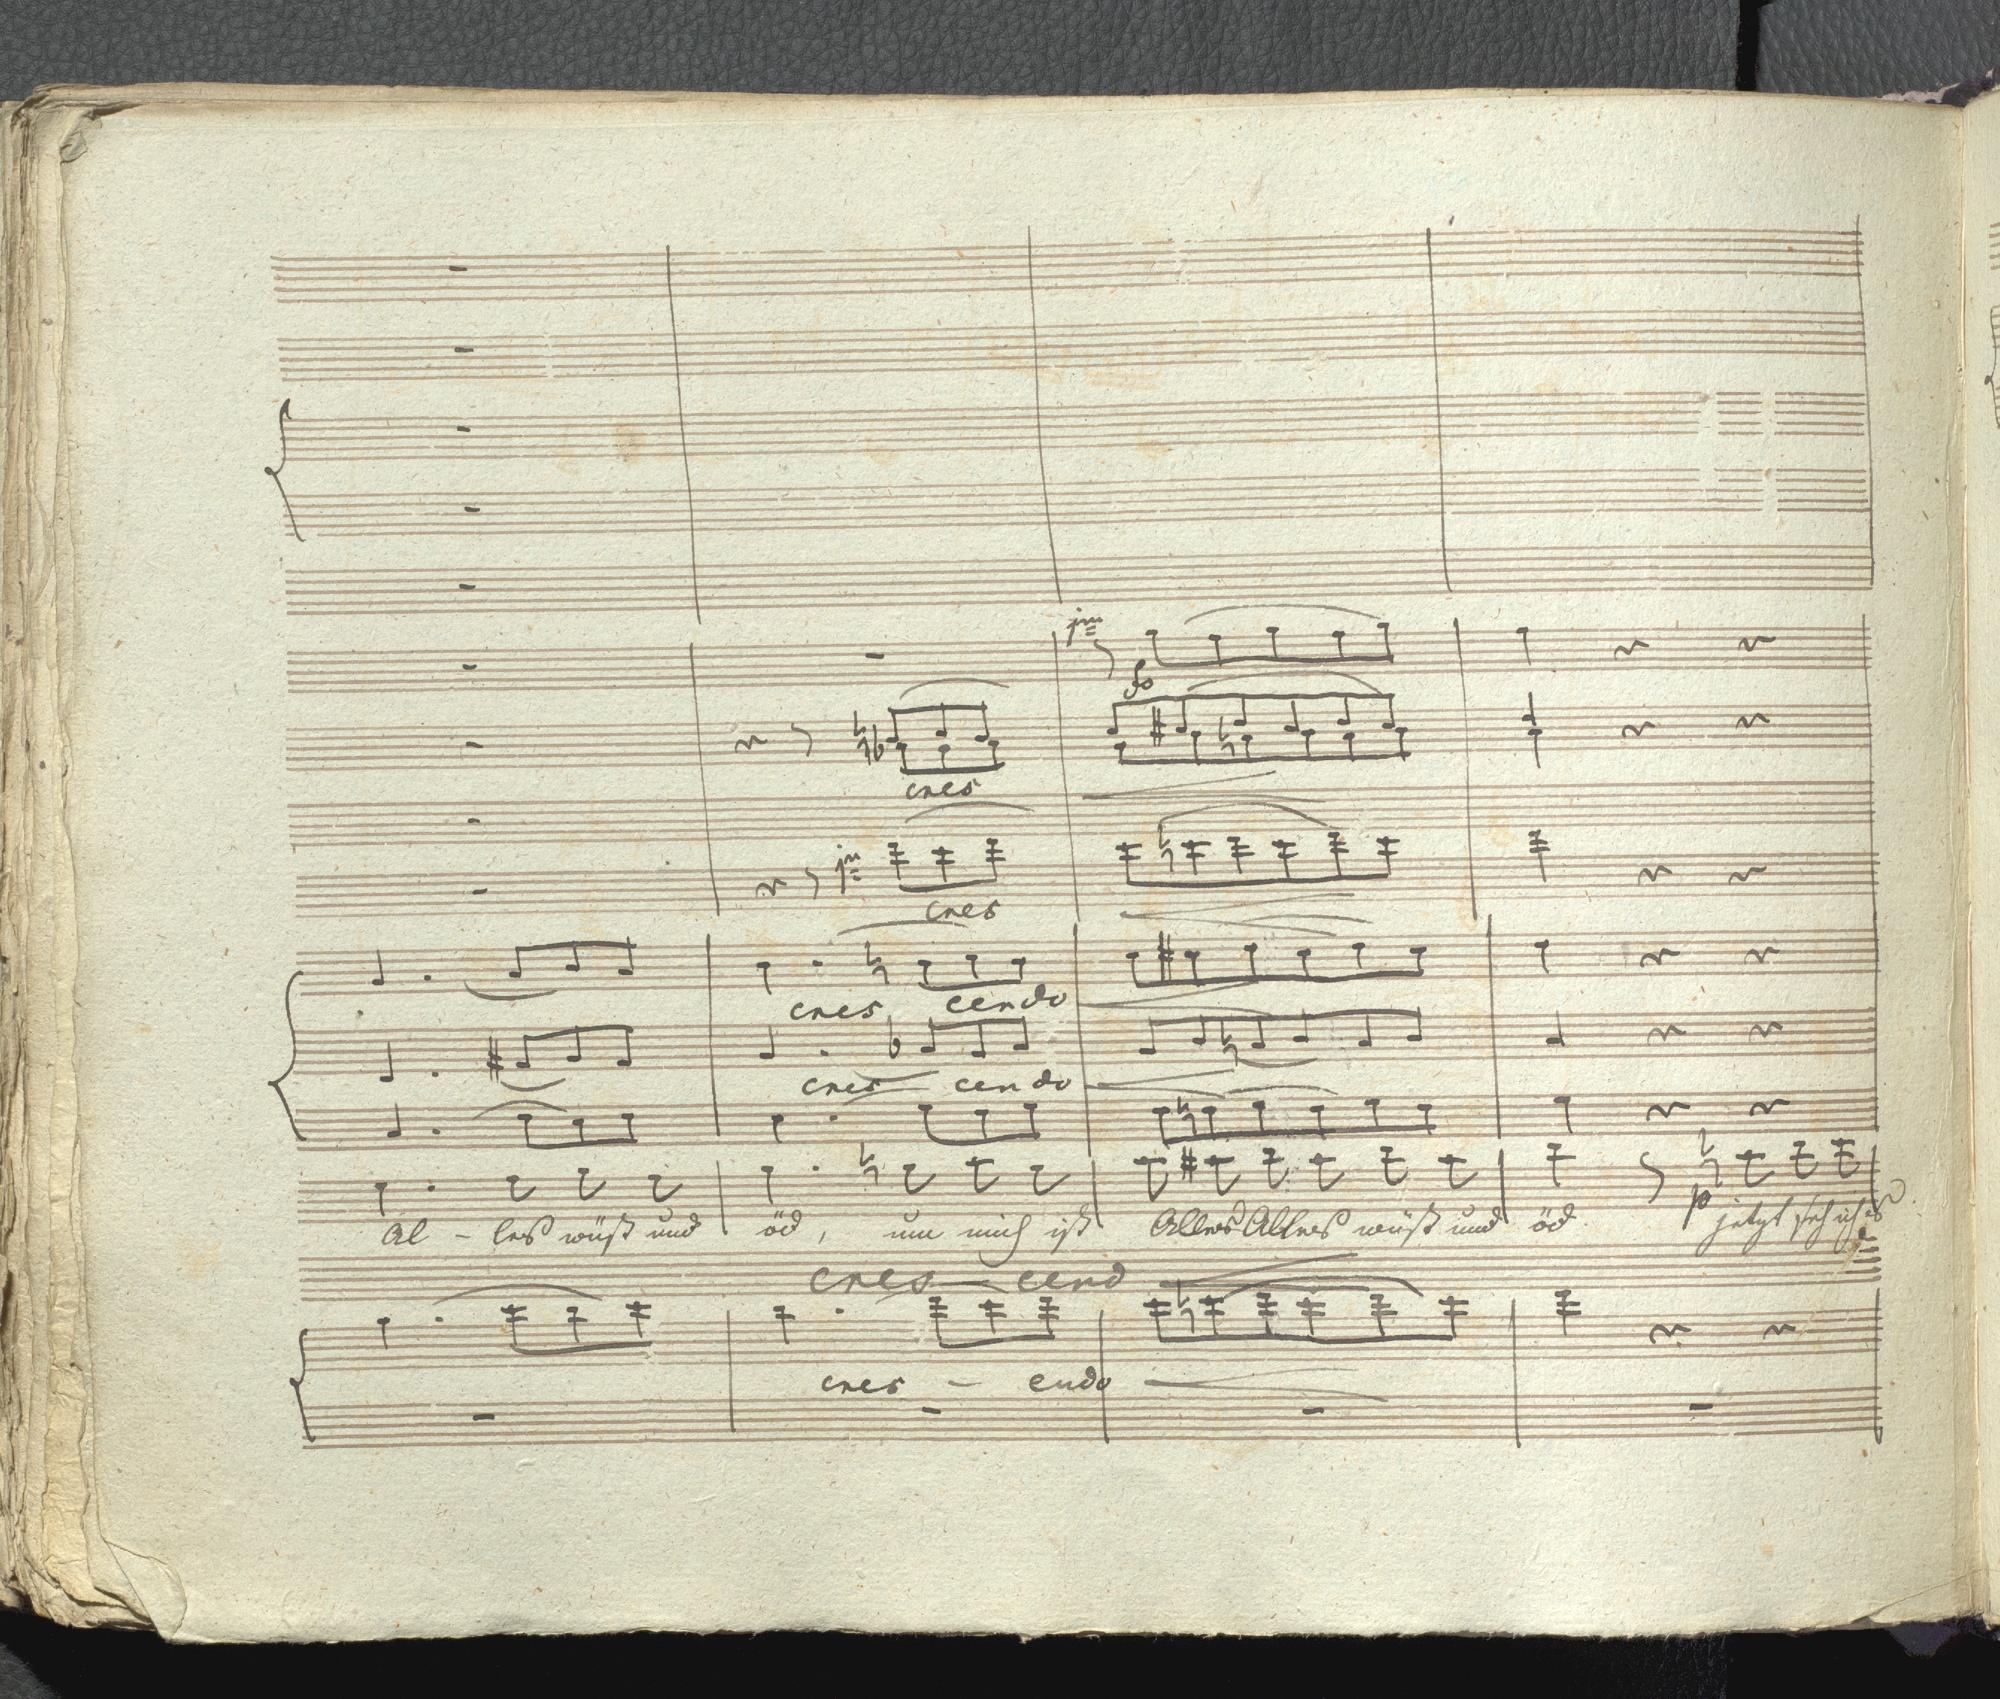 jmo
fo
cres
jmo
cres
cres cendo
cres cendo
Al - les wüst und öd, um mich ist Alles Alles wüst und öd p jetzt seh ich es
cres cend
cres - endo